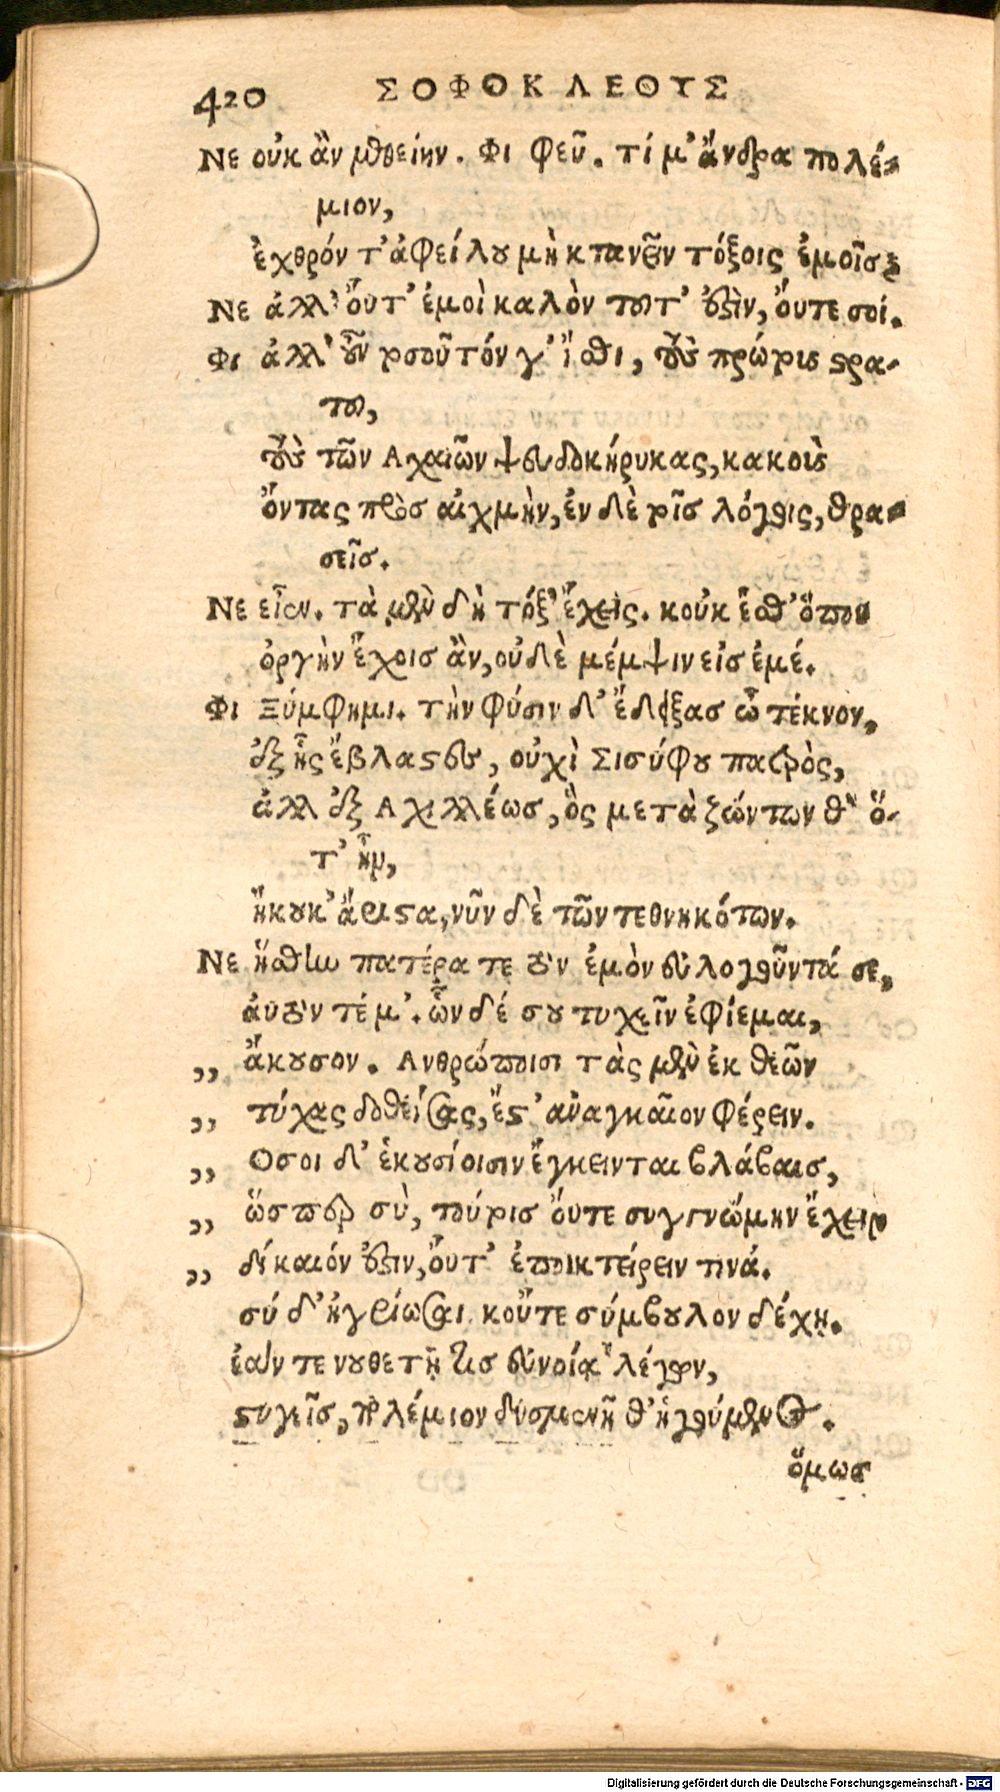 420 ΣΟΦΟΚΛΕΟΥΣ
Νε οὐκ ἂν μεθείην. Φι φεῦ. τί μ' ἄνδρα πολέ-
μιον,
ἐχθρόν τ' ἀφείλου μὴ κτανεῖν τόξοις ἐμοῖς;
Νε ἀλλ' οὔτ' ἐμοὶ καλὸν τοῦτ' ἐστὶν, οὔτε σοί.
Φι ἀλλ' οὖν τοσοῦτόν γ' ἴσθι, τοὺς πρώτους στρα-
τοῦ,
τοὺς τῶν Αχαιῶν ψευδοκήρυκας, κακοὺς
ὄντας πρὸς αἰχμὴν, ἐν δὲ τοῖς λόγοις, θρα-
σεῖς.
Νε εἶεν. τὰ μὲν δὴ τόξ' ἔχεις. κοὐκ ἔσθ' ὅπου
ὀργὴν ἔχοις ἂν, οὐδὲ μέμψιν εἰς ἐμέ.
Φι Ξύμφημι. τὴν φύσιν δ' ἔδειξας ὦ τέκνον,
ἐξ ἧς ἔβλαστες, οὐχὶ Σισύφου πατρὸς,
ἀλλ' ἐξ Αχιλλέως, ὃς μετὰ ζώντων θ' ὅ-
τ' ἦν,
ἤκουκ' ἄριστα, νῦν δὲ τῶν τεθνηκότων.
Νε ἥσθην πατέρα τε τὸν ἐμὸν εὐλογοῦντά σε,
ἀυτόν τέ μ'. ὧν δέ σου τυχεῖν ἐφίεμαι,
,, ἄκουσον. Ανθρώποισι τὰς μὲν ἐκ θεῶν
,, τύχας δοθείσας, ἔστ' ἀναγκαῖον φέρειν.
,, Οσοι δ' ἑκουσίοισιν ἔγκεινται βλάβαις,
,, ὥσπερ σὺ, τούτοις οὔτε συγγνώμην ἔχειν
,, δίκαιόν ἐστιν, οὔτ' ἐποικτείρειν τινά.
σύ δ' ἠγρίωσαι κοὔτε σύμβουλον δέχῃ.
ἐάν τε νουθετῇ τις εὐνοίᾳ λέγων,
στυγεῖς, πολέμιον δυσμενῆ θ' ἡγούμενος.
ὅμως
Digitalisierung gefördert durch die Deutsche Forschungsgemeinschaft - DFG